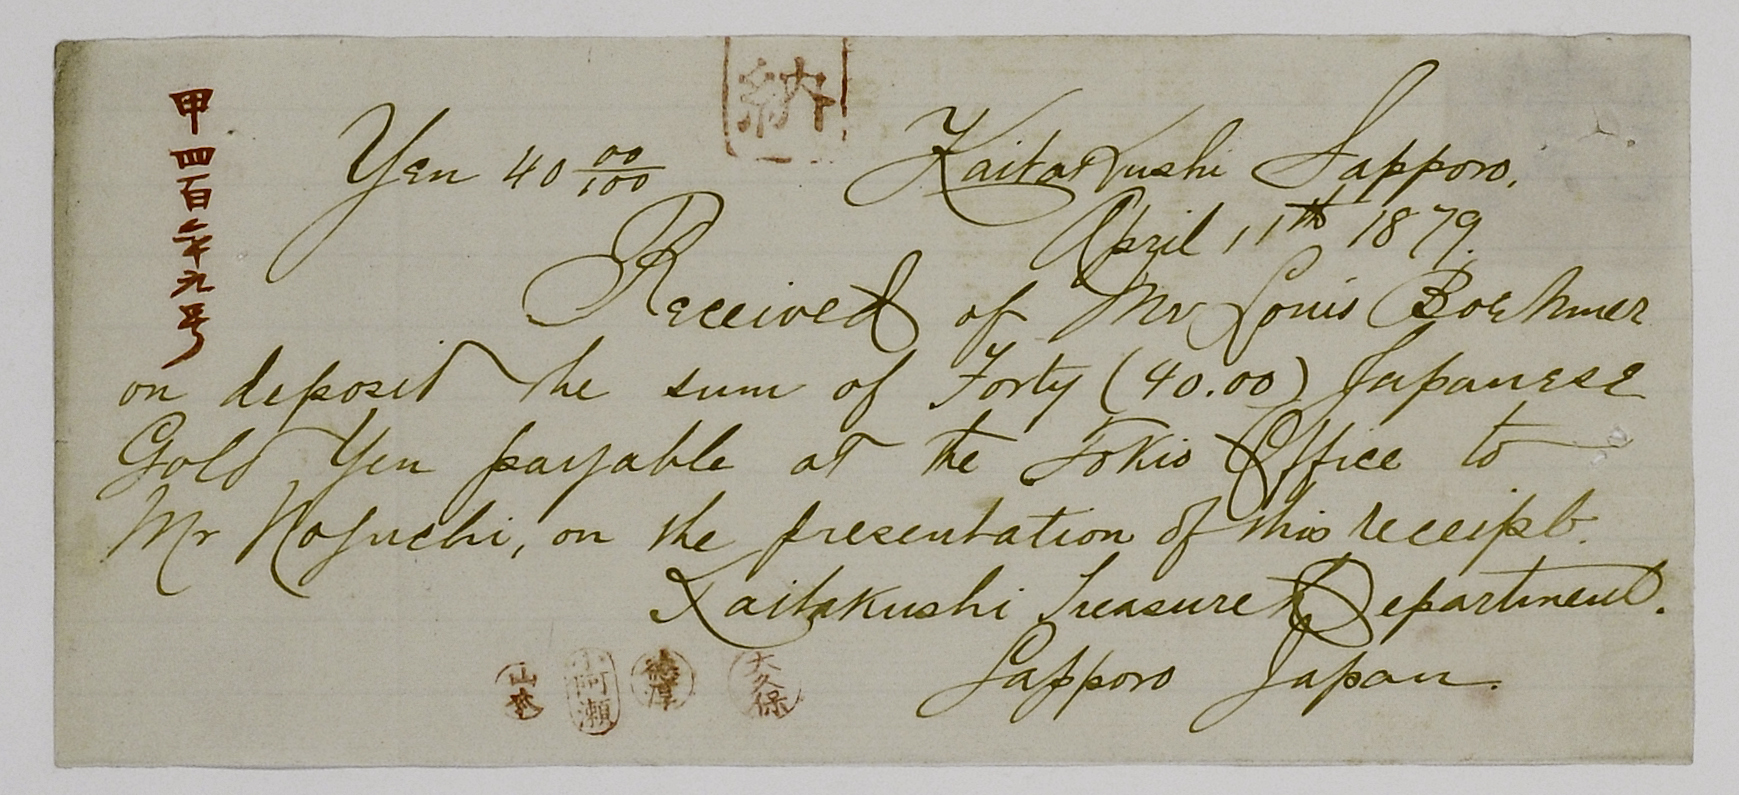 納
甲四百六十九号
Yen 40 00/100 Kaitakushi Sapporo.
April 11th 1879.
Received of Mr Louis Boehmer
on deposit the sum of Forty (40.00) Japanese
Gold Yen payable at the Tokio Office to
Mr Noguchi, on the presentation of this receipt.
Kaitakushi Treasure Department.
Sapporo Japan.
大久保